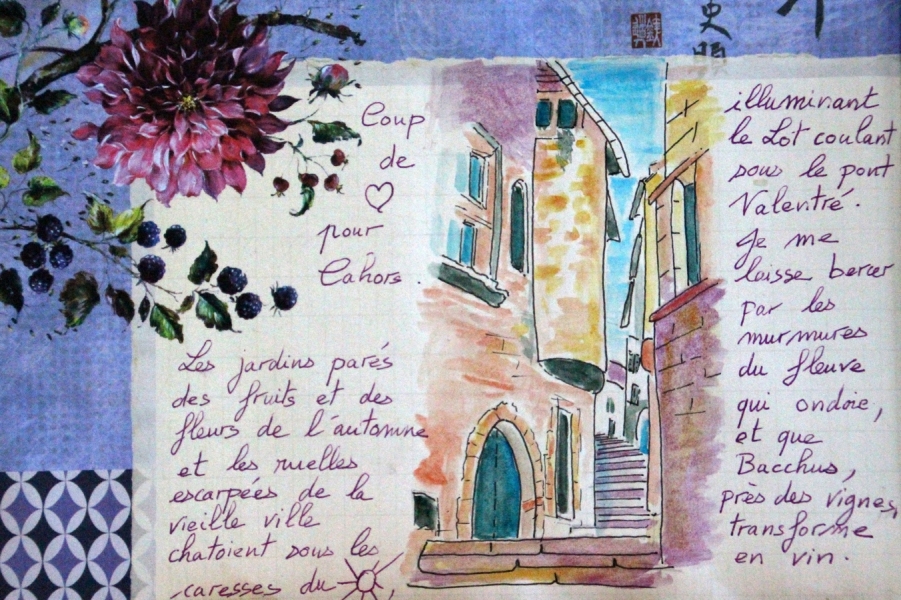 Coup
de
♡
pour
Cahors.
Les jardins parés
des fruits et des
fleurs de l'automne
et les ruelles
escarpées de la
vieille ville
chatoient sous les
caresses du ☼,
illuminant
le Lot coulant
sous le pont
Valentré.
Je me
laisse bercer
par les
murmures
du fleuve
qui ondoie,
et que
Bacchus,
près des vignes,
transforme
en vin.
史
明